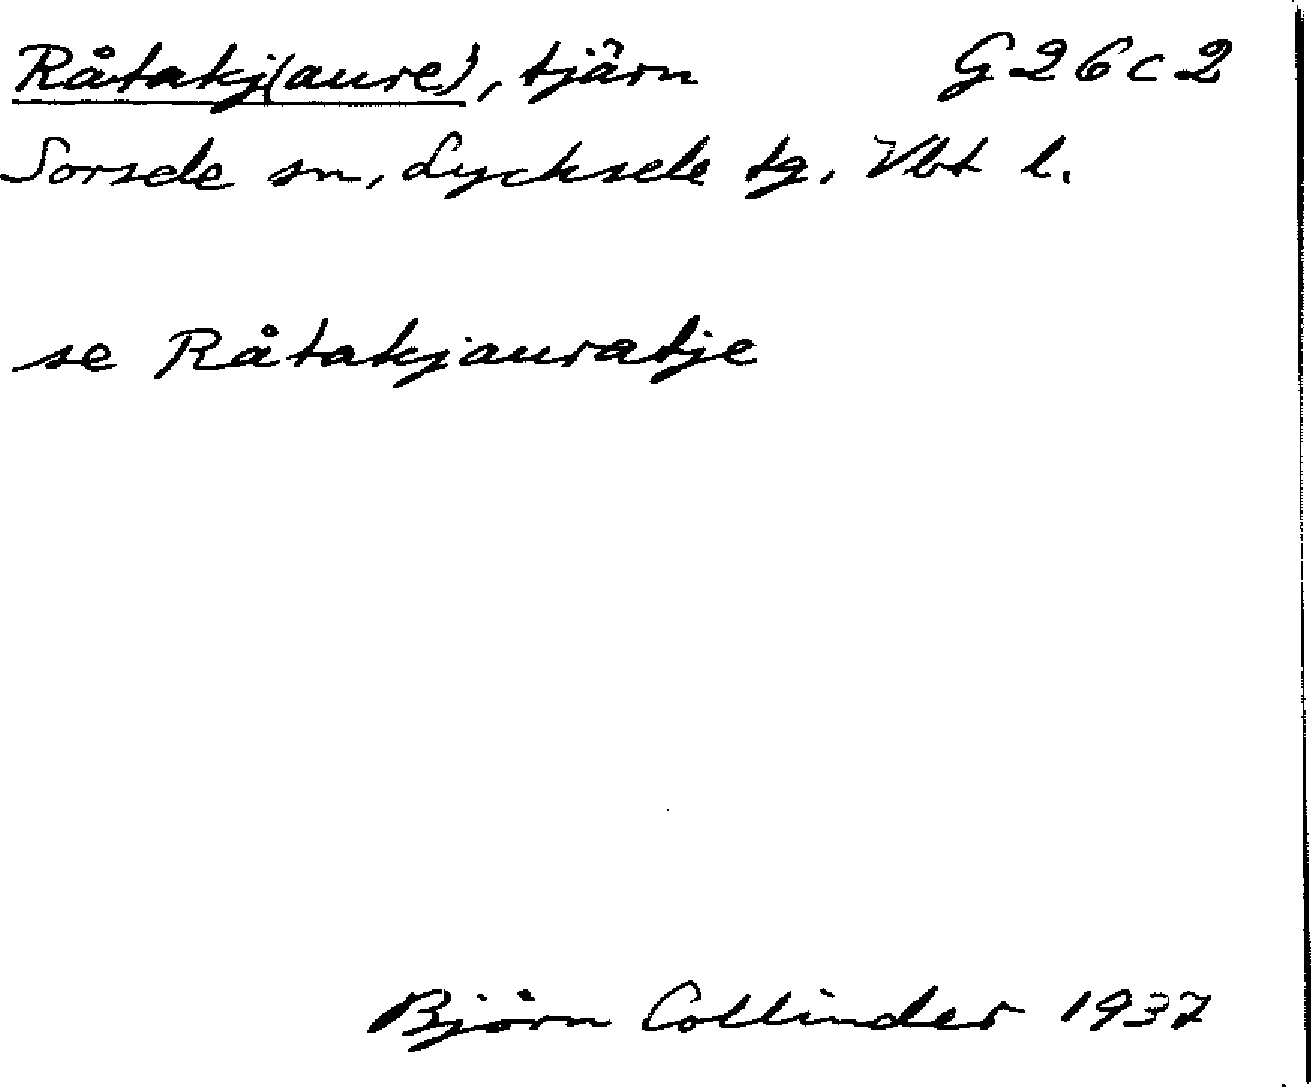 Råtakj(aure), tjärn G26c2
Sorsele sn, Lycksele tg, Vbt l.
se Råtakjauratje
Björn Collinder 1937